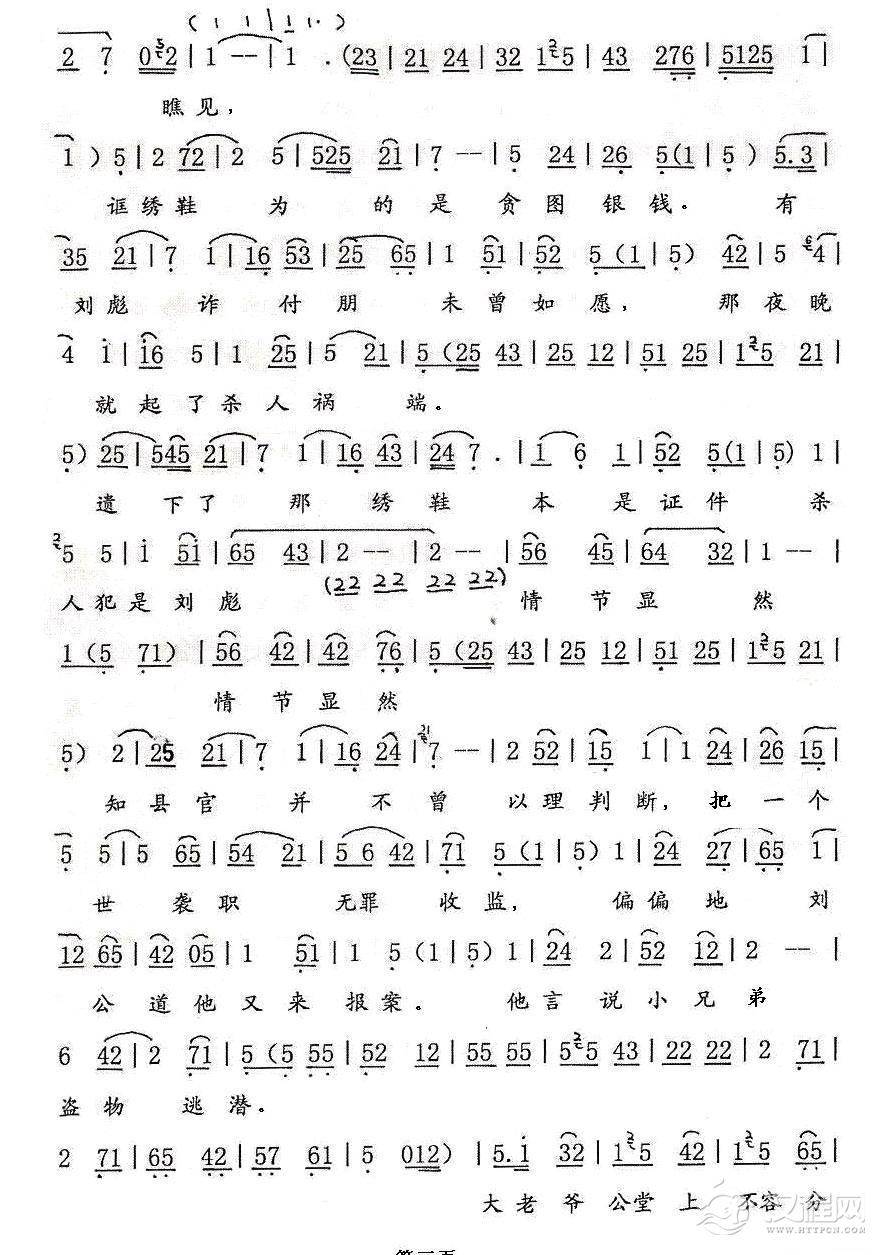 ( i i | i i· · )
2 7 0 2 | 1 -- | 1 . (23 | 21 24 | 32 1 5 | 43 276 | 5125 1 |
瞧见，
1 ) 5 | 2 72 | 2 5 | 525 21 | 7 -- | 5 24 | 26 5(1 | 5 ) 5.3 |
诓绣鞋 为 的是贪图银钱。有
35 21 | 7 1 | 16 53 | 25 65 | 1 51 | 52 5 (1 | 5) 42 | 5 4 |
刘彪 诈 付朋 未曾如愿，那夜晚
4 i | i6 5 | 1 25 | 5 21 | 5 (25 43 | 25 12 | 51 25 | 1 5 21 |
就起了杀人祸 端。
5) 25 | 545 21 | 7 1 | 16 43 | 24 7 . | 1 6 1 | 52 5(1 | 5) 1 |
遗下了 那绣鞋 本是证件杀
5 5 | i 5i | 65 43 | 2 -- | 2 -- | 56 45 | 64 32 | 1 -- |
(22 22 22 22)
人犯是刘彪 情节显 然
1 (5 71) | 56 42 | 42 76 | 5 (25 43 | 25 12 | 51 25 | 1 5 21 |
情节显然
5) 2 | 25 21 | 7 1 | 16 24 | 7 -- | 2 52 | 15 1 | 1 24 | 26 15 |
知县官 并不曾 以理判断，把一个
5 5 | 5 65 | 54 21 | 5 6 42 | 71 5 (1 | 5) 1 | 24 27 | 65 1 |
世 袭职 无罪 收监， 偏偏地 刘
12 65 | 42 05 | 1 51 | 1 5 (1 | 5) 1 | 24 2 | 52 12 | 2 -- |
公道他又来报案。 他言说小兄弟
6 42 | 2 71 | 5 (5 55 | 52 12 | 55 55 | 5 5 43 | 22 22 | 2 71 |
盗物 逃潜。
2 71 | 65 42 | 57 61 | 5 012) | 5.i 32 | 1 5 42 | 1 5 65 |
大老爷公堂上不容分
汉程网
WWW.HTTPCN.COM